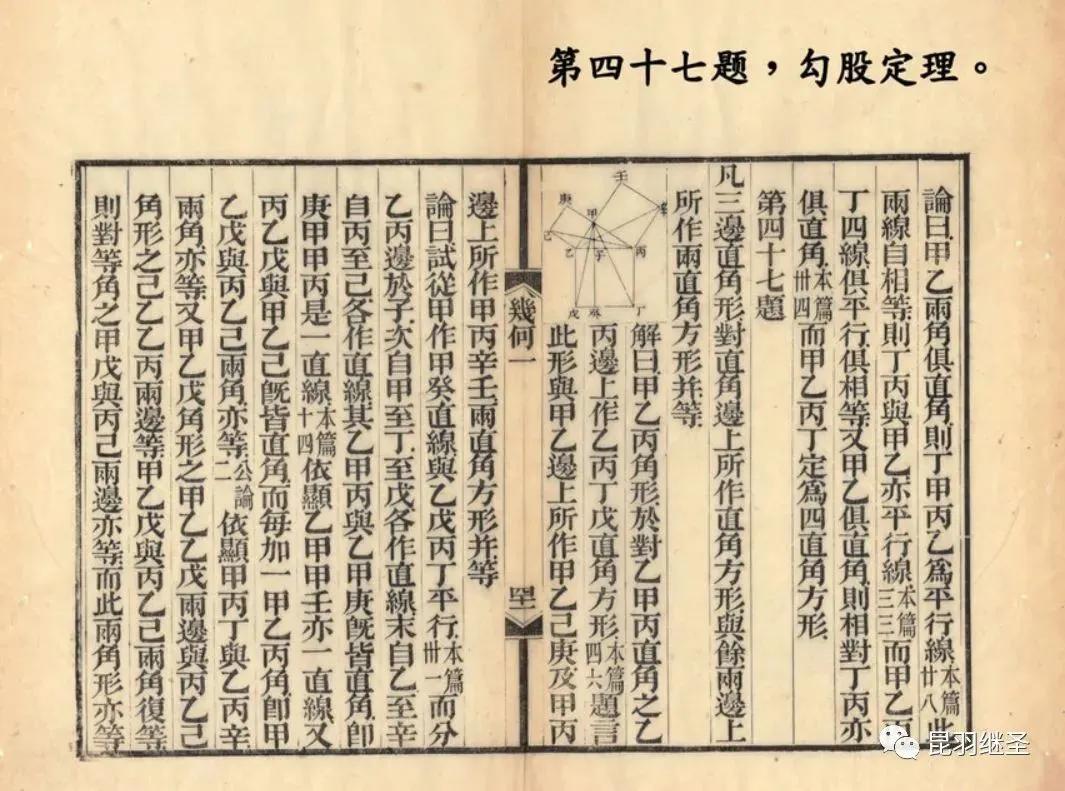 第四十七题，勾股定理。
論曰甲乙兩角俱直角則丁甲丙乙為平行線本篇廿八此
兩線自相等則丁丙與甲乙亦平行線本篇三三而甲乙丙
丁四線俱平行俱相等又甲乙俱直角則相對丁丙亦
俱直角本篇卅四而甲乙丙丁定爲四直角方形
第四十七題
凡三邊直角形對直角邊上所作直角方形與餘兩邊上
所作兩直角方形并等
壬
庚
甲
己
乙
子
丙
戊
丁
解曰甲乙丙角形於對乙甲丙直角之乙
丙邊上作乙丙丁戊直角方形本篇四六題言
此形與甲乙邊上所作甲乙己庚及甲丙
幾何一
邊上所作甲丙辛壬兩直角方形并等
論曰試從甲作甲癸直線與乙戊丙丁平行本篇卅一而分
乙丙邊於子次自甲至丁至戊各作直線末自乙至辛
自丙至己各作直線其乙甲丙與乙甲庚旣皆直角卽
庚甲甲丙是一直線本篇十四依顯乙甲甲壬亦一直線又
丙乙戊與甲乙己旣皆直角而每加一甲乙丙角卽甲
乙戊與丙乙己兩角亦等公論二依顯甲丙丁與乙丙辛
兩角亦等又甲乙戊角形之甲乙乙戊兩邊與丙乙己
角形之己乙乙丙兩邊等甲乙戊與丙乙己兩角復等
則對等角之甲戊與丙己兩邊亦等而此兩角形亦等
昆羽继圣